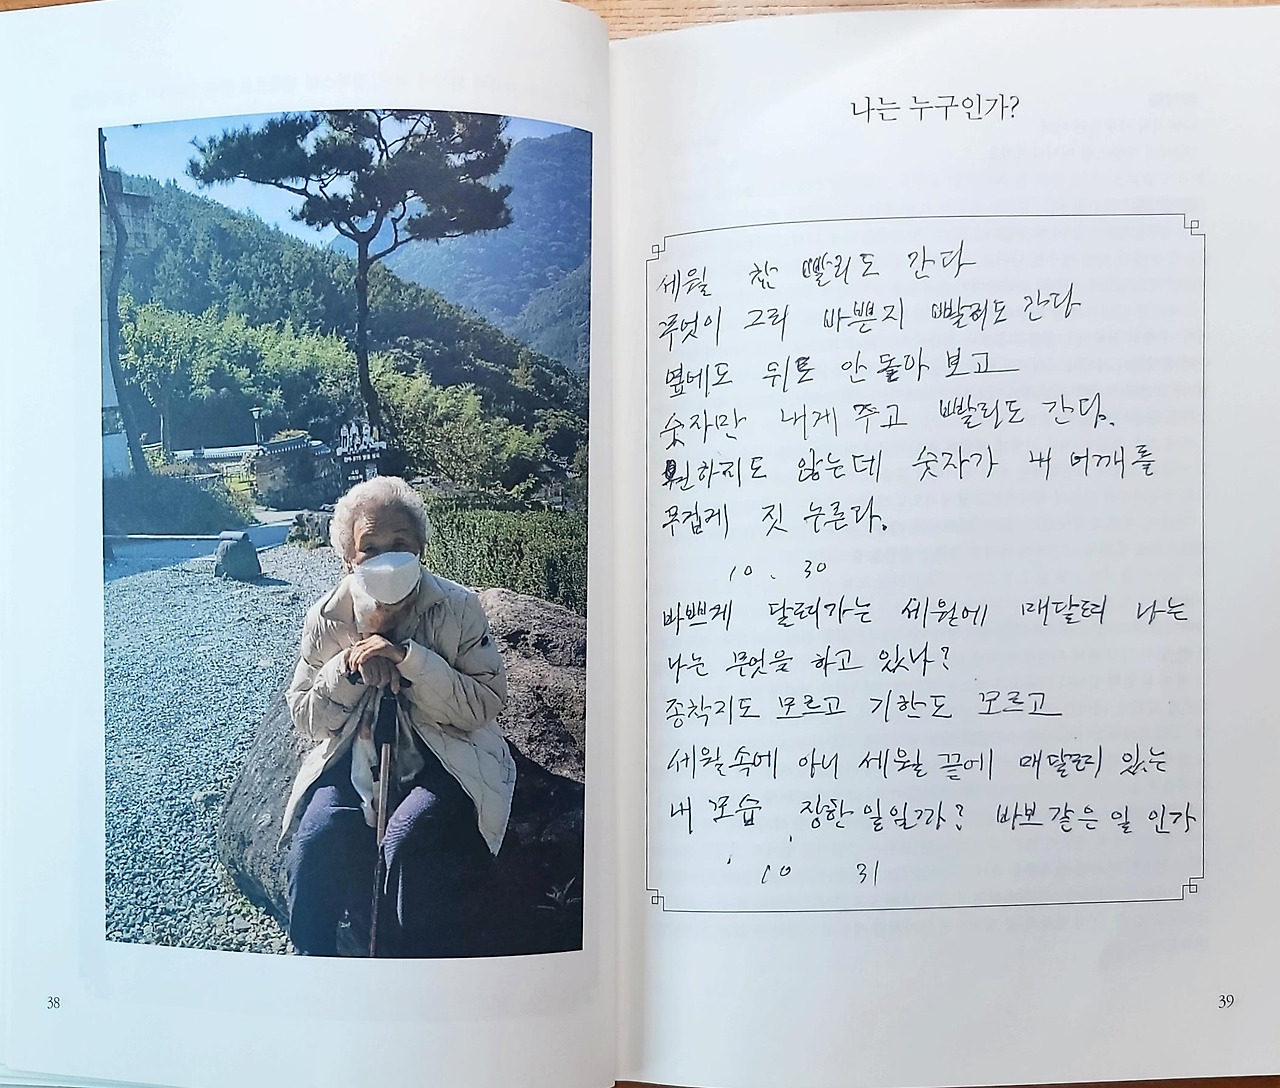 나는 누구인가?
세월 참 빨리도 간다
무엇이 그리 바쁜지 빨리도 간다
옆에도 뒤도 안 돌아 보고
숫자만 내게 주고 빨리도 간다.
원하지도 않는데 숫자가 내 어깨를
무겁게 짓 누른다.
10. 30
바쁘게 달려가는 세월에 매달려 나는
나는 무엇을 하고 있나?
종착지도 모르고 기한도 모르고
세월속에 아니 세월 끝에 매달려 있는
내 모습 장한 일일까? 바보 같은 일 인가
10 31
38
39